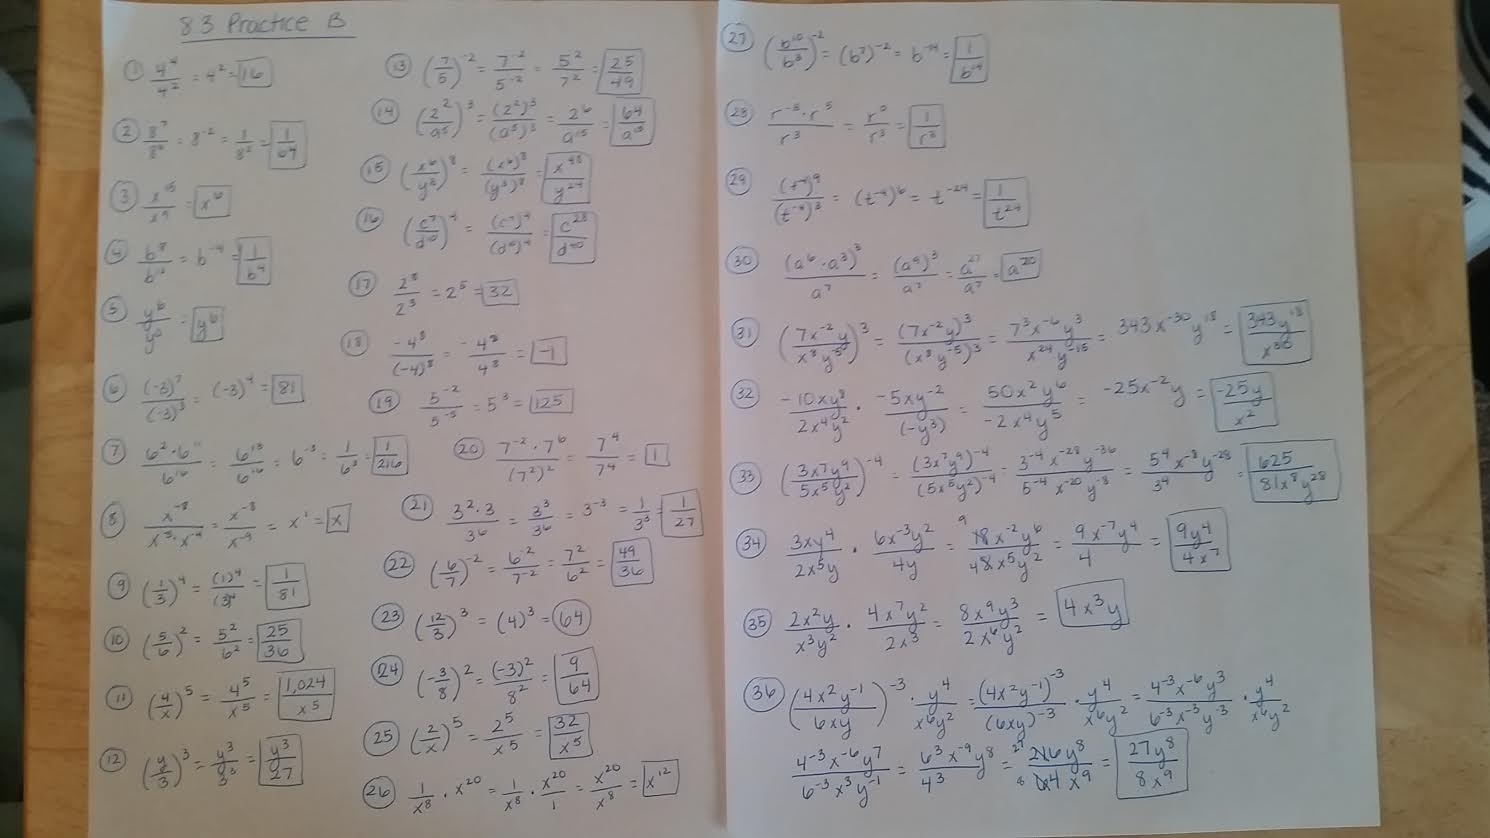 8.3 Practice B
① 4⁴/4² = 4² = 16
② 8⁷/8⁹ = 8⁻² = 1/8² = 1/64
③ x¹⁵/x⁹ = x⁶
④ b⁸/b¹² = b⁻⁴ = 1/b⁴
⑤ y⁶/y⁰ = y⁶
⑥ (-3)⁷/(-3)³ = (-3)⁴ = 81
⑦ 6²·6¹¹/6¹⁶ = 6¹³/6¹⁶ = 6⁻³ = 1/6³ = 1/216
⑧ x⁻⁸/x⁻⁵·x⁻⁴ = x⁻⁸/x⁻⁹ = x¹ = x
⑨ (1/3)⁴ = (1)⁴/(3)⁴ = 1/81
⑩ (5/6)² = 5²/6² = 25/36
⑪ (4/x)⁵ = 4⁵/x⁵ = 1,024/x⁵
⑫ (y/3)³ = y³/3³ = y³/27
⑬ (7/5)⁻² = 7⁻²/5⁻² = 5²/7² = 25/49
⑭ (2²/a⁵)³ = (2²)³/(a⁵)³ = 2⁶/a¹⁵ = 64/a¹⁵
⑮ (x⁶/y³)⁸ = (x⁶)⁸/(y³)⁸ = x⁴⁸/y²⁴
⑯ (c⁷/d¹⁰)⁴ = (c⁷)⁴/(d¹⁰)⁴ = c²⁸/d⁴⁰
⑰ 2⁸/2³ = 2⁵ = 32
⑱ -4⁸/(-4)⁸ = -4⁸/4⁸ = -1
⑲ 5⁻²/5⁻⁵ = 5³ = 125
⑳ 7⁻²·7⁶/(7²)² = 7⁴/7⁴ = 1
㉑ 3²·3/3⁶ = 3³/3⁶ = 3⁻³ = 1/3³ = 1/27
㉒ (6/7)⁻² = 6⁻²/7⁻² = 7²/6² = 49/36
㉓ (12/3)³ = (4)³ = 64
㉔ (-3/8)² = (-3)²/8² = 9/64
㉕ (2/x)⁵ = 2⁵/x⁵ = 32/x⁵
㉖ 1/x⁸ · x²⁰ = 1/x⁸ · x²⁰/1 = x²⁰/x⁸ = x¹²
㉗ (b¹⁰/b³)⁻² = (b⁷)⁻² = b⁻¹⁴ = 1/b¹⁴
㉘ r⁻⁵·r⁵/r³ = r⁰/r³ = 1/r³
㉙ (t⁻⁴)⁹/(t⁻⁴)³ = (t⁻⁴)⁶ = t⁻²⁴ = 1/t²⁴
㉚ (a⁶·a³)³/a⁷ = (a⁹)³/a⁷ = a²⁷/a⁷ = a²⁰
㉛ (7x⁻²y/x⁸y⁻⁵)³ = (7x⁻²y)³/(x⁸y⁻⁵)³ = 7³x⁻⁶y³/x²⁴y⁻¹⁵ = 343x⁻³⁰y¹⁸ = 343y¹⁸/x³⁰
㉜ -10xy⁸/2x⁴y² · -5xy⁻²/(-y³) = 50x²y⁶/-2x⁴y⁵ = -25x⁻²y = -25y/x²
㉝ (3x⁷y⁹/5x⁵y²)⁻⁴ = (3x⁷y⁹)⁻⁴/(5x⁵y²)⁻⁴ = 3⁻⁴x⁻²⁸y⁻³⁶/5⁻⁴x⁻²⁰y⁻⁸ = 5⁴x⁻⁸y⁻²⁸/3⁴ = 625/81x⁸y²⁸
㉞ 3xy⁴/2x⁵y · 6x⁻³y²/4y = 9 18x⁻²y⁶/4 8x⁵y² = 9x⁻⁷y⁴/4 = 9y⁴/4x⁷
㉟ 2x²y/x³y² · 4x⁷y²/2x³ = 8x⁹y³/2x⁶y² = 4x³y
㊱ (4x²y⁻¹/6xy)⁻³ · y⁴/x⁶y² = (4x²y⁻¹)⁻³/(6xy)⁻³ · y⁴/x⁶y² = 4⁻³x⁻⁶y³/6⁻³x⁻³y⁻³ · y⁴/x⁶y²
4⁻³x⁻⁶y⁷/6⁻³x³y⁻¹ = 6³x⁻⁹y⁸/4³ = 27 216y⁸/8 64x⁹ = 27y⁸/8x⁹